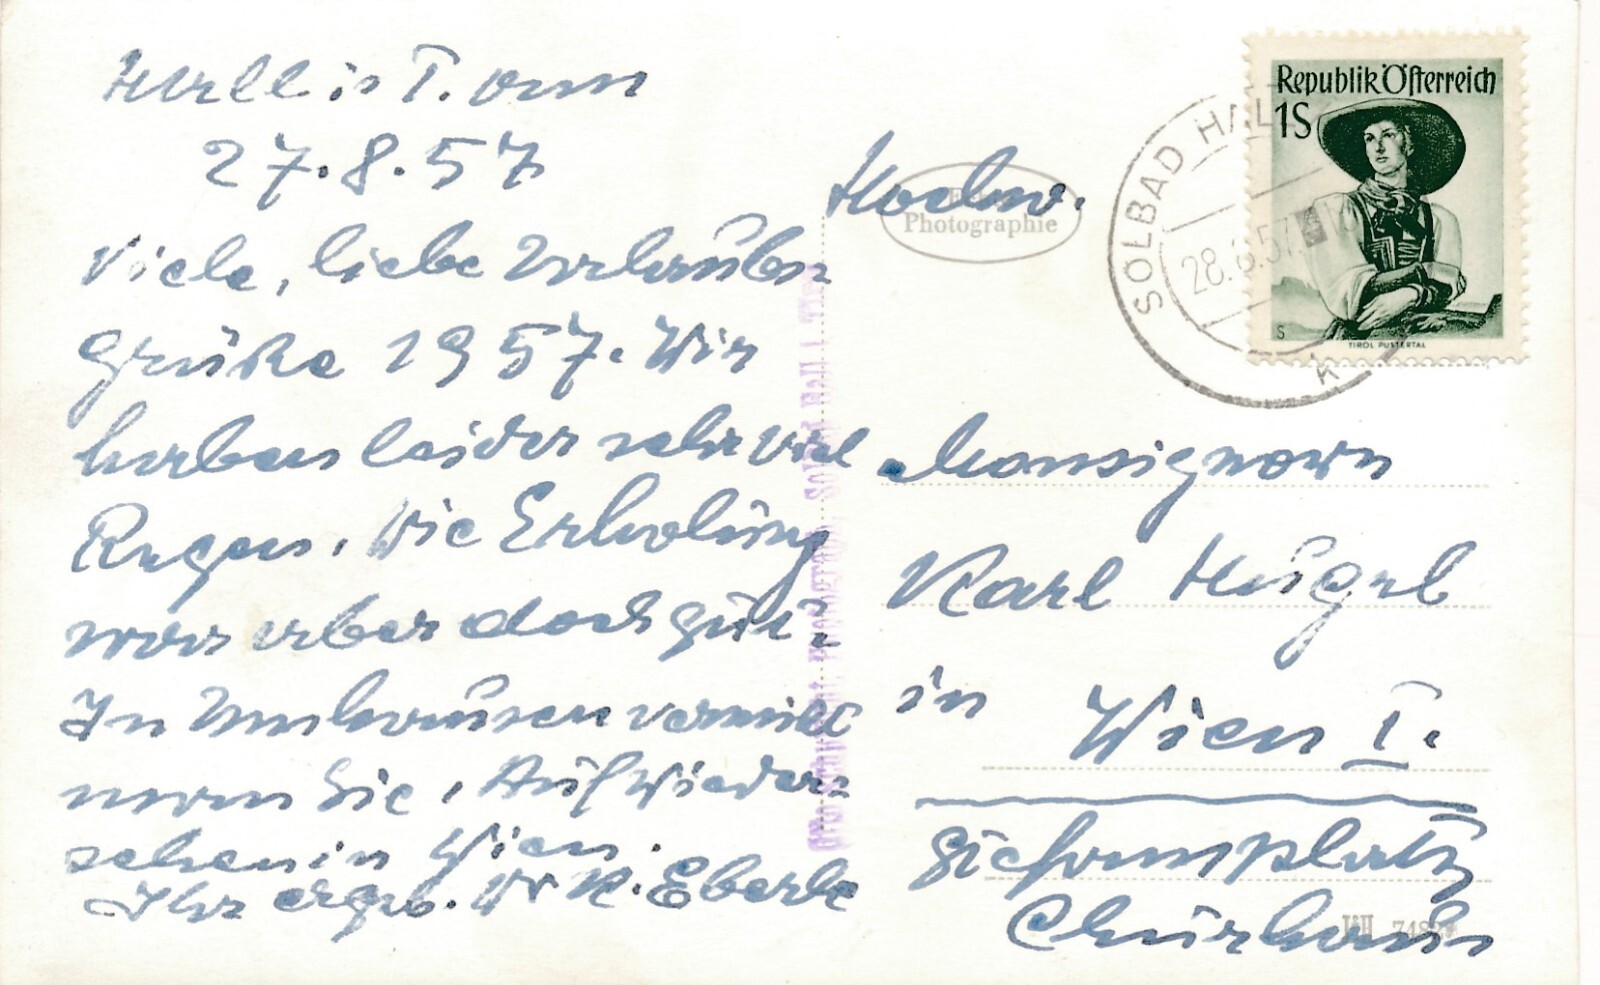 Hall i. T. am
27.8.57
Viele, liebe Urlaubs
grüße 1957. Wir
haben leider sehr viel
Regen. Die Erholung
war aber doch gut.
In Umhausen vermißt
man Sie. Auf Wieder
sehen in Wien.
Ihr ergeb. Dr K. Eberle
Hochw.
Photographie
SOLBAD HALL
28.8.57
Republik Österreich
1S
TIROL PUSTERTAL
Monsignore
Karl Hügel
in Wien I.
Stefansplatz
Churhaus